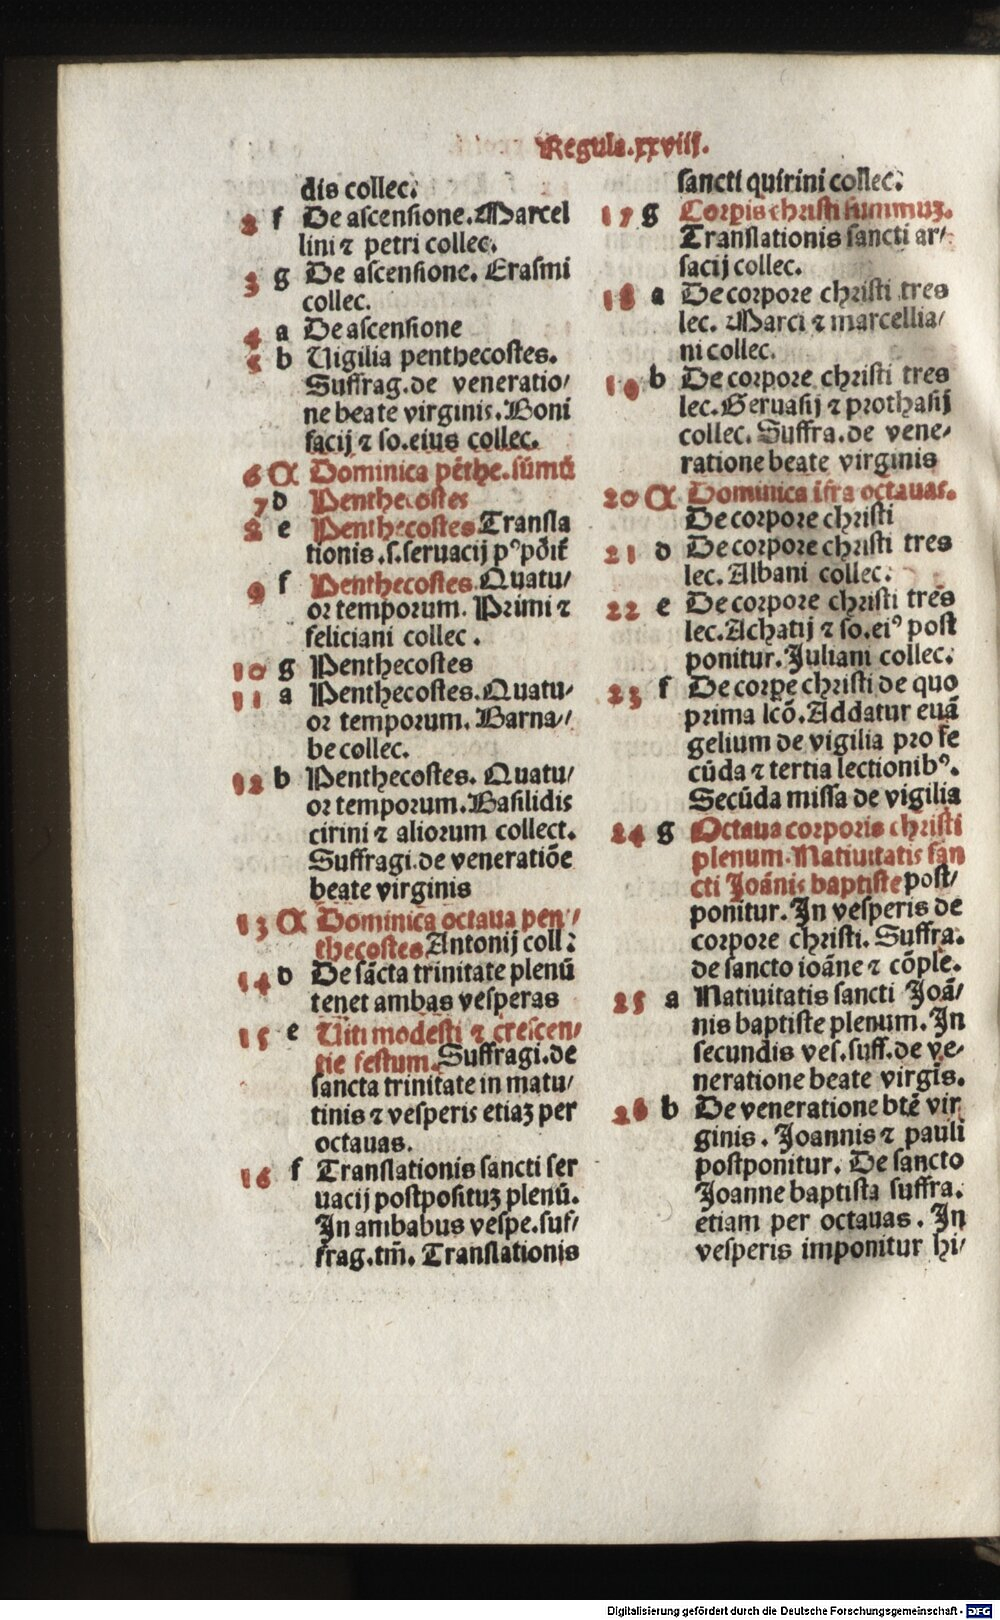 Regula.xxviij.
dis collec:
2 f De ascensione. Marcel
lini ⁊ petri collec.
3 g De ascensione. Erasmi
collec.
4 a De ascensione
5 b Uigilia penthecostes.
Suffrag. de veneratio/
ne beate virginis. Boni
facij ⁊ so. eius collec.
6 A Dominica pēthe. sūmū
7 d Penthecostes
8 e Penthecostes Transla
tionis .s. seruacij pꝰpōit̄
9 f Penthecostes. Quatu/
or temporum. Primi ⁊
feliciani collec .
10 g Penthecostes
11 a Penthecostes. Quatu/
or temporum. Barna//
be collec.
12 b Penthecostes. Quatu/
or temporum. Basilidis
cirini ⁊ aliorum collect.
Suffragi. de veneratiōe
beate virginis
13 A Dominica octaua pen/
thecostes Antonij coll:
14 d De sācta trinitate plenū
tenet ambas vesperas
15 e Uiti modesti ⁊ crescen/
tie festum. Suffragi. de
sancta trinitate in matu/
tinis ⁊ vesperis etiaꝫ per
octauas.
16 f Translationis sancti ser
uacij postposituꝫ plenū.
In ambabus vespe. suf/
frag. tm̄. Translationis
sancti quirini collec:
17 g Corpis christi summuꝫ.
Translationis sancti ar/
sacij collec.
18 a De corpore christi tres
lec. Marci ⁊ marcellia/
ni collec.
19 b De corpore christi tres
lec. Geruasij ⁊ prothasij
collec. Suffra. de vene/
ratione beate virginis
20 A Dominica ifra octauas.
De corpore christi
21 d De corpore christi tres
lec. Albani collec:
22 e De corpore christi tres
lec. Achatij ⁊ so. eiꝰ post
ponitur. Juliani collec:
23 f De corpe christi de quo
prima lcō. Addatur euā
gelium de vigilia pro se
cūda ⁊ tertia lectionibꝰ.
Secūda missa de vigilia
24 g Octaua corporis christi
plenum. Natiuitatis san
cti Joānis baptiste post/
ponitur. In vesperis de
corpore christi. Suffra.
de sancto ioāne ⁊ cōple.
25 a Natiuitatis sancti Joā/
nis baptiste plenum. In
secundis ves. suff. de ve/
neratione beate virgīs.
26 b De veneratione btē vir
ginis . Joannis ⁊ pauli
postponitur. De sancto
Joanne baptista suffra.
etiam per octauas . In
vesperis imponitur hi/
Digitalisierung gefördert durch die Deutsche Forschungsgemeinschaft - DFG